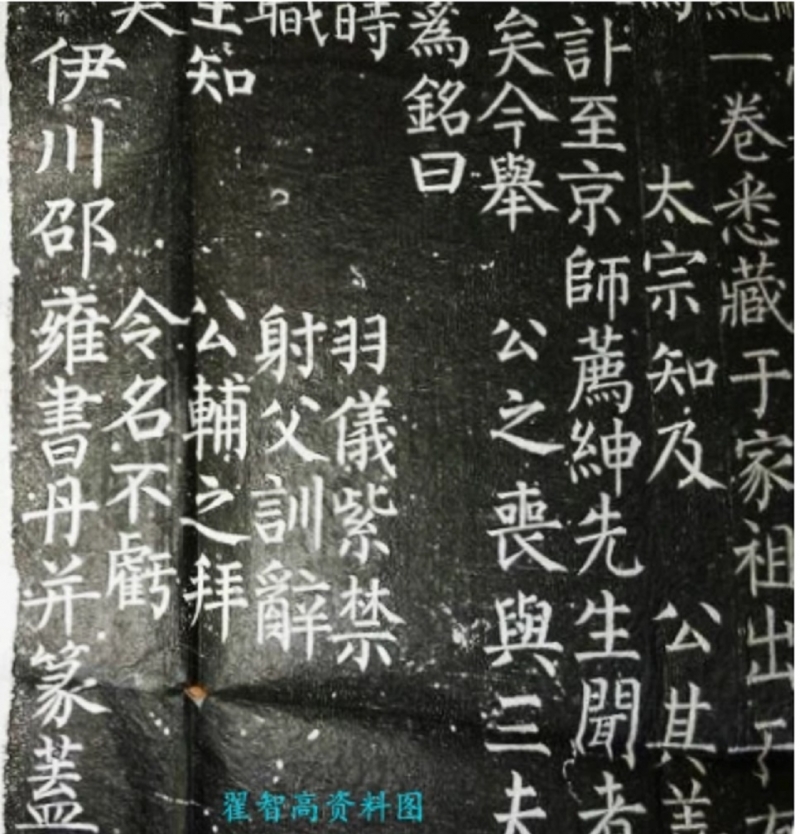 一卷悉藏于家祖出子
太宗知及 公其美
訃至京師薦紳先生聞者
矣今舉 公之喪與三夫
為銘曰
時 羽儀紫禁
職 射父訓辭
生知 公輔之拜
令名不虧
伊川邵雍書丹并篆蓋
翟智高资料图